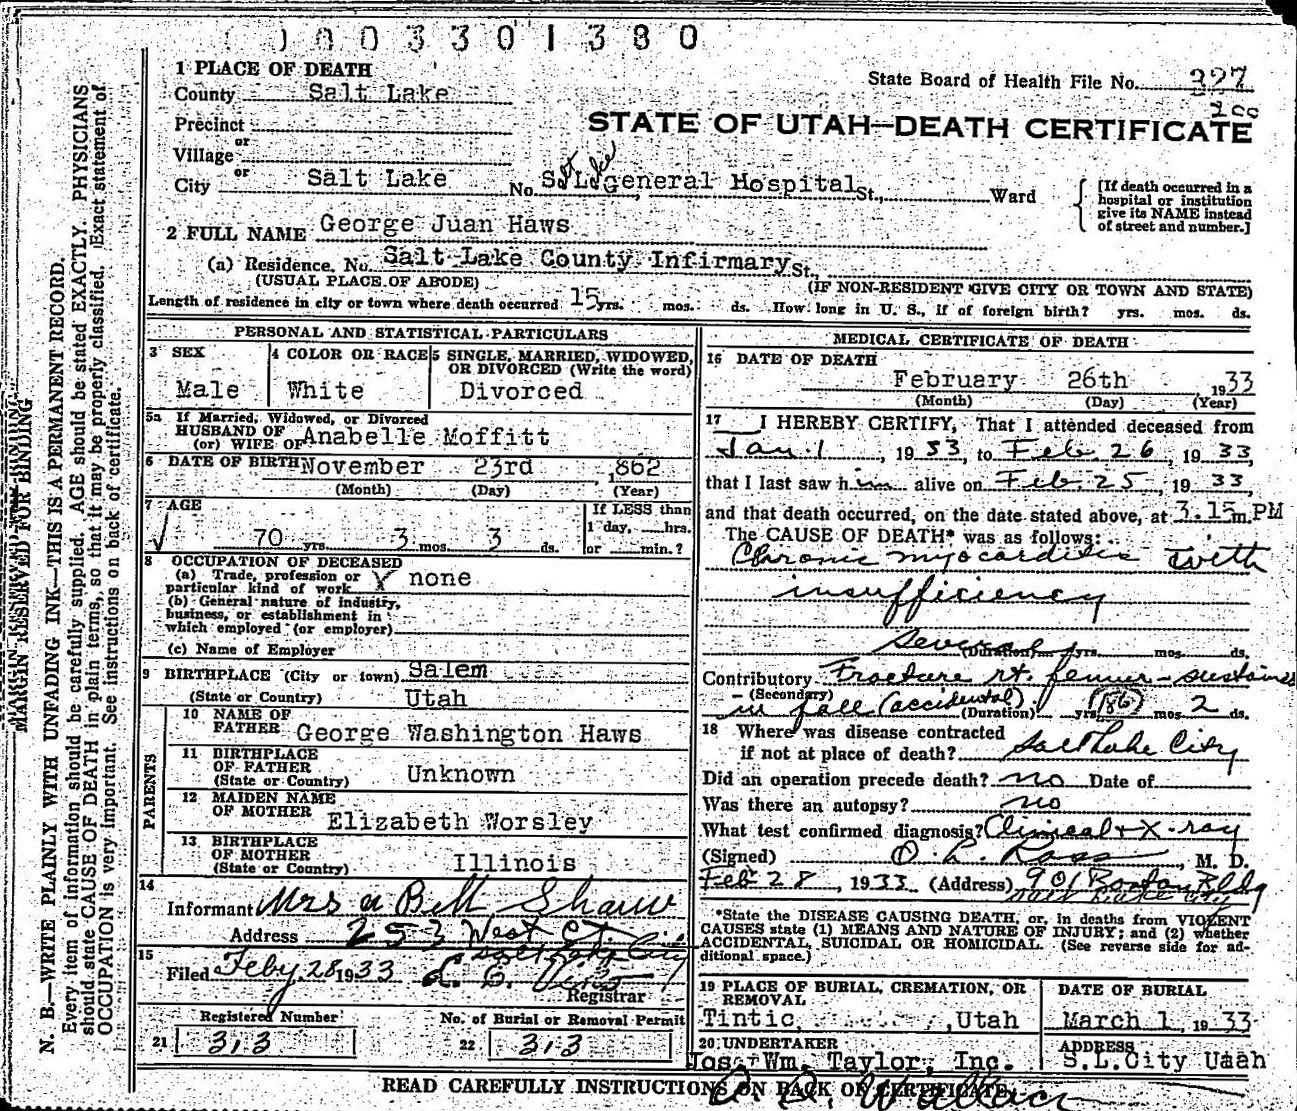 1003301380
1 PLACE OF DEATH
State Board of Health File No. 327
County Salt Lake
Precinct
STATE OF UTAH—DEATH CERTIFICATE
or
Village
or
City Salt Lake No. Salt Lake General Hospital St., Ward
[If death occurred in a
hospital or institution
give its NAME instead
of street and number.]
2 FULL NAME George Juan Haws
(a) Residence. No. Salt Lake County Infirmary St.,
(USUAL PLACE OF ABODE) (IF NON-RESIDENT GIVE CITY OR TOWN AND STATE)
Length of residence in city or town where death occurred 15 yrs. mos. ds. How long in U. S., if of foreign birth? yrs. mos. ds.
PERSONAL AND STATISTICAL PARTICULARS
3 SEX
Male
4 COLOR OR RACE
White
5 SINGLE, MARRIED, WIDOWED,
OR DIVORCED (Write the word)
Divorced
5a If Married, Widowed, or Divorced
HUSBAND OF
(or) WIFE OF Anabelle Moffitt
6 DATE OF BIRTH November 23rd 1862
(Month) (Day) (Year)
7 AGE
70 yrs. 3 mos. 3 ds.
If LESS than
1 day, hrs.
or min.?
8 OCCUPATION OF DECEASED
(a) Trade, profession or
particular kind of work none
(b) General nature of industry,
business, or establishment in
which employed (or employer)
(c) Name of Employer
9 BIRTHPLACE (City or town) Salem
(State or Country) Utah
PARENTS
10 NAME OF
FATHER George Washington Haws
11 BIRTHPLACE
OF FATHER
(State or Country) Unknown
12 MAIDEN NAME
OF MOTHER Elizabeth Worsley
13 BIRTHPLACE
OF MOTHER
(State or Country) Illinois
14
Informant Mrs a Bell Shaw
Address 253 West
Salt Lake City
15
Filed Feby 28 1933
Registrar
Registered Number
21 313
No. of Burial or Removal Permit
22 313
MEDICAL CERTIFICATE OF DEATH
16 DATE OF DEATH
February 26th 1933
(Month) (Day) (Year)
17 I HEREBY CERTIFY, That I attended deceased from
Jan. 1, 1933, to Feb. 26, 1933,
that I last saw him alive on Feb. 25, 1933,
and that death occurred, on the date stated above, at 3.15 m. PM
The CAUSE OF DEATH* was as follows:
Chronic myocarditis with
insufficiency
Several (Duration) yrs. mos. ds.
Contributory Fracture rt. femur - sustained
(Secondary)
in fall (accidental) (Duration) yrs. (186) mos. 2 ds.
18 Where was disease contracted
if not at place of death? Salt Lake City
Did an operation precede death? no Date of
Was there an autopsy? no
What test confirmed diagnosis? Clinical + X-ray
(Signed) O. L. Ross, M. D.
Feb 28, 1933 (Address) 901 Boston Bldg
Salt Lake City
*State the DISEASE CAUSING DEATH, or, in deaths from VIOLENT
CAUSES state (1) MEANS AND NATURE OF INJURY; and (2) whether
ACCIDENTAL, SUICIDAL OR HOMICIDAL. (See reverse side for ad-
ditional space.)
19 PLACE OF BURIAL, CREMATION, OR
REMOVAL
Tintic, Utah
DATE OF BURIAL
March 1, 1933
20 UNDERTAKER
Jos. Wm. Taylor, Inc.
ADDRESS
S.L.City Utah
READ CAREFULLY INSTRUCTIONS ON BACK OF CERTIFICATE.
MARGIN RESERVED FOR BINDING
N. B.—WRITE PLAINLY WITH UNFADING INK—THIS IS A PERMANENT RECORD.
Every item of information should be carefully supplied. AGE should be stated EXACTLY. PHYSICIANS
should state CAUSE OF DEATH in plain terms, so that it may be properly classified. Exact statement of
OCCUPATION is very important. See instructions on back of certificate.